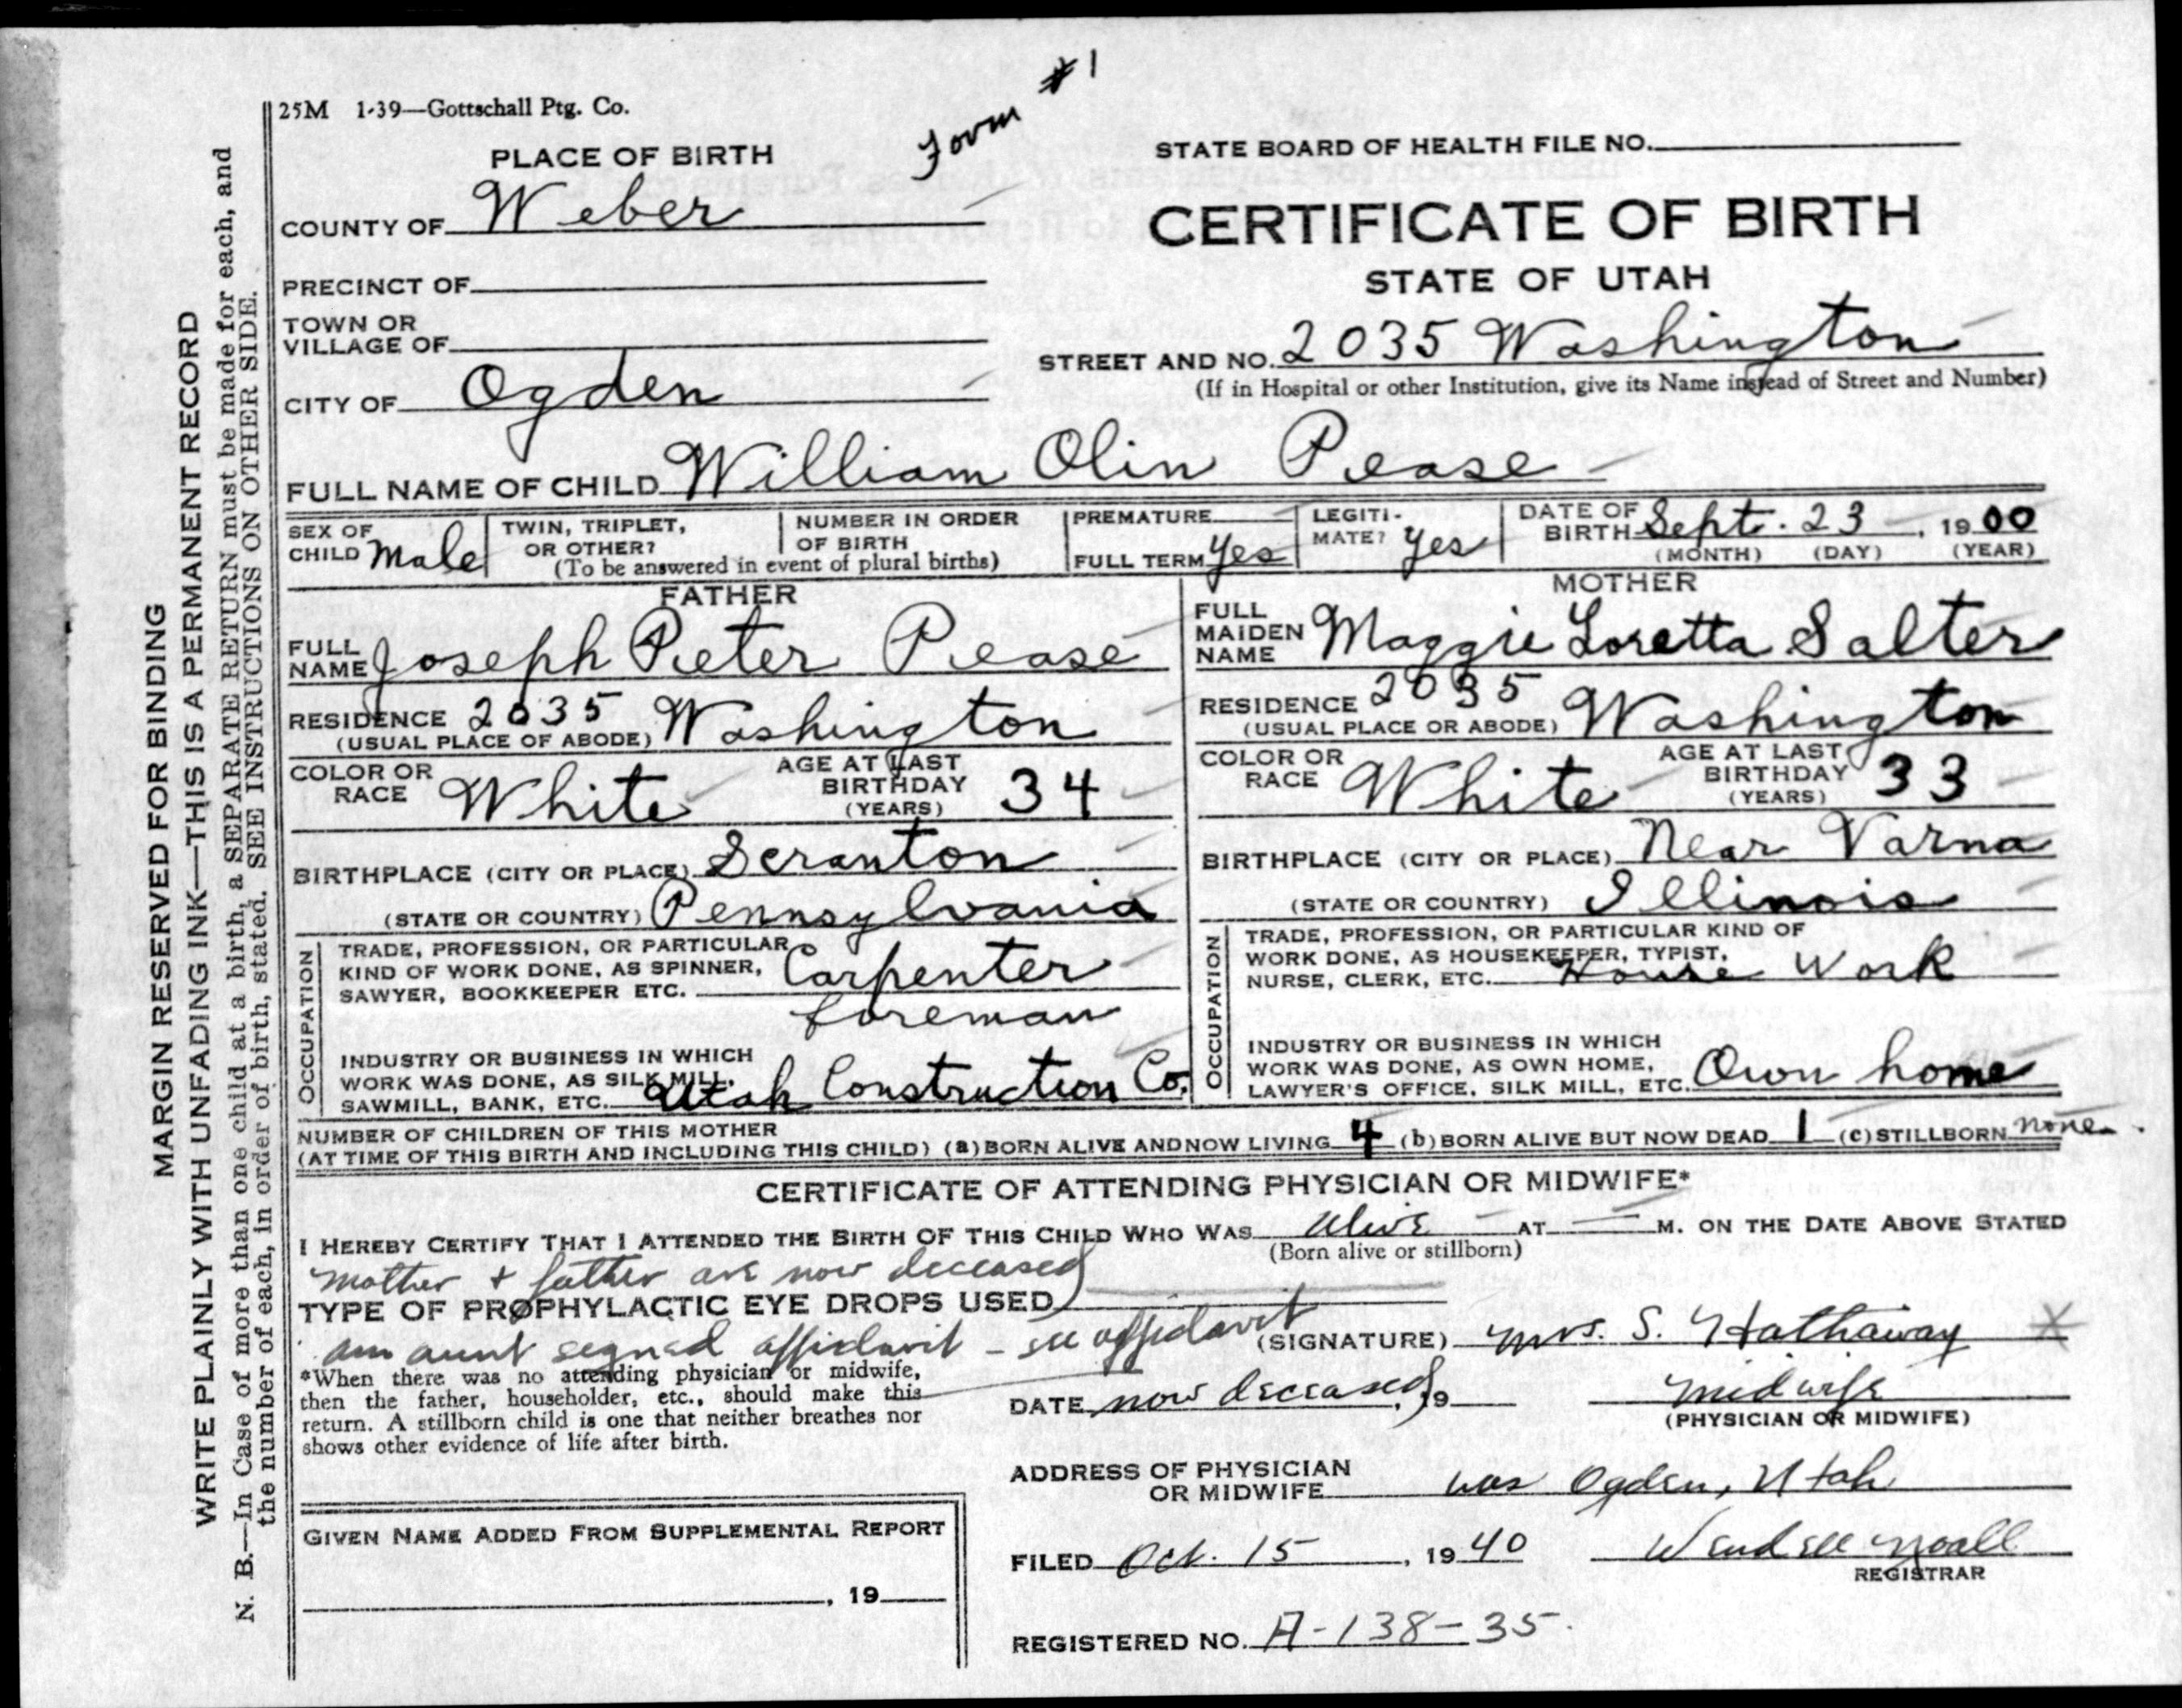 25M 1-39—Gottschall Ptg. Co.
Form #1
STATE BOARD OF HEALTH FILE NO.
PLACE OF BIRTH
COUNTY OF Weber
CERTIFICATE OF BIRTH
PRECINCT OF
STATE OF UTAH
TOWN OR
VILLAGE OF
STREET AND NO. 2035 Washington
(If in Hospital or other Institution, give its Name instead of Street and Number)
CITY OF Ogden
FULL NAME OF CHILD William Olin Pease
SEX OF CHILD Male
TWIN, TRIPLET, OR OTHER?
NUMBER IN ORDER OF BIRTH
(To be answered in event of plural births)
PREMATURE
FULL TERM Yes
LEGITI-MATE? Yes
DATE OF BIRTH Sept. 23, 1900
(MONTH) (DAY) (YEAR)
FATHER
FULL NAME Joseph Pieter Pease
RESIDENCE 2035 Washington
(USUAL PLACE OF ABODE)
COLOR OR RACE White
AGE AT LAST BIRTHDAY (YEARS) 34
BIRTHPLACE (CITY OR PLACE) Scranton
(STATE OR COUNTRY) Pennsylvania
OCCUPATION
TRADE, PROFESSION, OR PARTICULAR
KIND OF WORK DONE, AS SPINNER,
SAWYER, BOOKKEEPER ETC. Carpenter
foreman
INDUSTRY OR BUSINESS IN WHICH
WORK WAS DONE, AS SILK MILL,
SAWMILL, BANK, ETC. Utah Construction Co.
MOTHER
FULL MAIDEN NAME Maggie Loretta Salter
RESIDENCE 2035 Washington
(USUAL PLACE OR ABODE)
COLOR OR RACE White
AGE AT LAST BIRTHDAY (YEARS) 33
BIRTHPLACE (CITY OR PLACE) Near Varna
(STATE OR COUNTRY) Illinois
OCCUPATION
TRADE, PROFESSION, OR PARTICULAR KIND OF
WORK DONE, AS HOUSEKEEPER, TYPIST,
NURSE, CLERK, ETC. House Work
INDUSTRY OR BUSINESS IN WHICH
WORK WAS DONE, AS OWN HOME,
LAWYER'S OFFICE, SILK MILL, ETC. Own home
NUMBER OF CHILDREN OF THIS MOTHER
(AT TIME OF THIS BIRTH AND INCLUDING THIS CHILD) (a) BORN ALIVE AND NOW LIVING 4 (b) BORN ALIVE BUT NOW DEAD 1 (c) STILLBORN none.
CERTIFICATE OF ATTENDING PHYSICIAN OR MIDWIFE*
I HEREBY CERTIFY THAT I ATTENDED THE BIRTH OF THIS CHILD WHO WAS Alive AT — M. ON THE DATE ABOVE STATED
(Born alive or stillborn)
Mother & father are now deceased
TYPE OF PROPHYLACTIC EYE DROPS USED
am aunt signed affidavit - see affidavit
(SIGNATURE) Mrs. S. Hathaway X
*When there was no attending physician or midwife,
then the father, householder, etc., should make this
return. A stillborn child is one that neither breathes nor
shows other evidence of life after birth.
DATE now deceased, 19
Midwife
(PHYSICIAN OR MIDWIFE)
ADDRESS OF PHYSICIAN
OR MIDWIFE was Ogden, Utah
GIVEN NAME ADDED FROM SUPPLEMENTAL REPORT
, 19
FILED Oct. 15, 1940 Wendell Noall
REGISTRAR
REGISTERED NO. A-138-35.
MARGIN RESERVED FOR BINDING
WRITE PLAINLY WITH UNFADING INK—THIS IS A PERMANENT RECORD
N. B.—In Case of more than one child at a birth, a SEPARATE RETURN must be made for each, and
the number of each, in order of birth, stated. SEE INSTRUCTIONS ON OTHER SIDE.